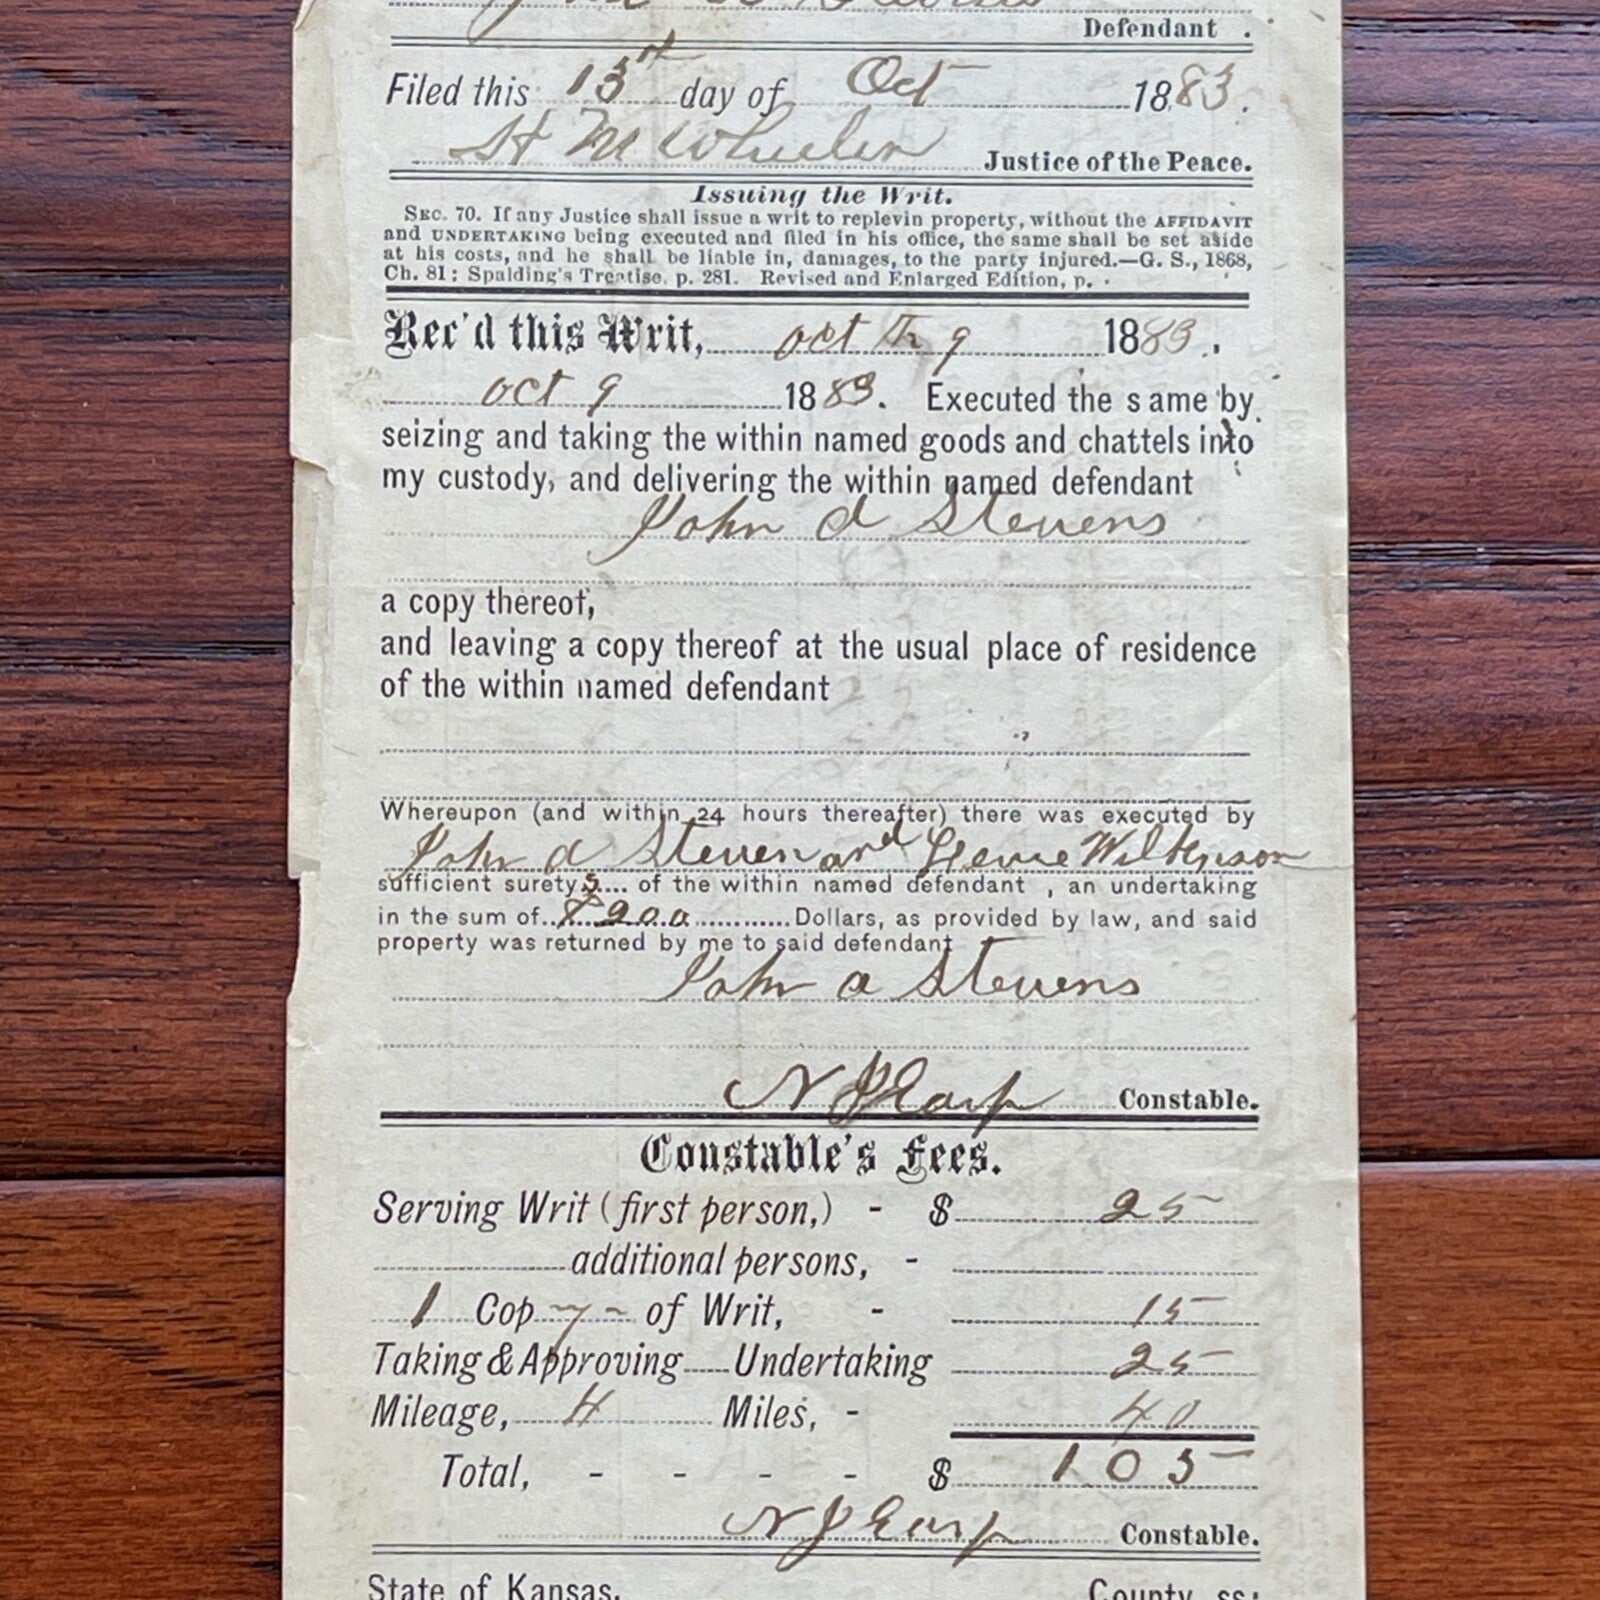 Defendant .
Filed this 13th day of Oct 1883.
H M Wheeler Justice of the Peace.
Issuing the Writ.
SEC. 70. If any Justice shall issue a writ to replevin property, without the AFFIDAVIT
and UNDERTAKING being executed and filed in his office, the same shall be set aside
at his costs, and he shall be liable in, damages, to the party injured.—G. S., 1868,
Ch. 81; Spalding's Treatise, p. 281. Revised and Enlarged Edition, p.
Rec'd this Writ, oct Th 9 1883.
oct 9 1883. Executed the same by
seizing and taking the within named goods and chattels into
my custody, and delivering the within named defendant
John a Stevens
a copy thereof,
and leaving a copy thereof at the usual place of residence
of the within named defendant
Whereupon (and within 24 hours thereafter) there was executed by
John a Steven and Wilkenson
sufficient suretys of the within named defendant , an undertaking
in the sum of $ 200 Dollars, as provided by law, and said
property was returned by me to said defendant
John a Stevens
N J Earp Constable.
Constable's Fees.
Serving Writ (first person,) - $ 25
additional persons, -
1 Copy of Writ, - 15
Taking & Approving Undertaking 25
Mileage, 4 Miles, - 40
Total, - - - - $ 1 05
N J Earp Constable.
State of Kansas, County ss: